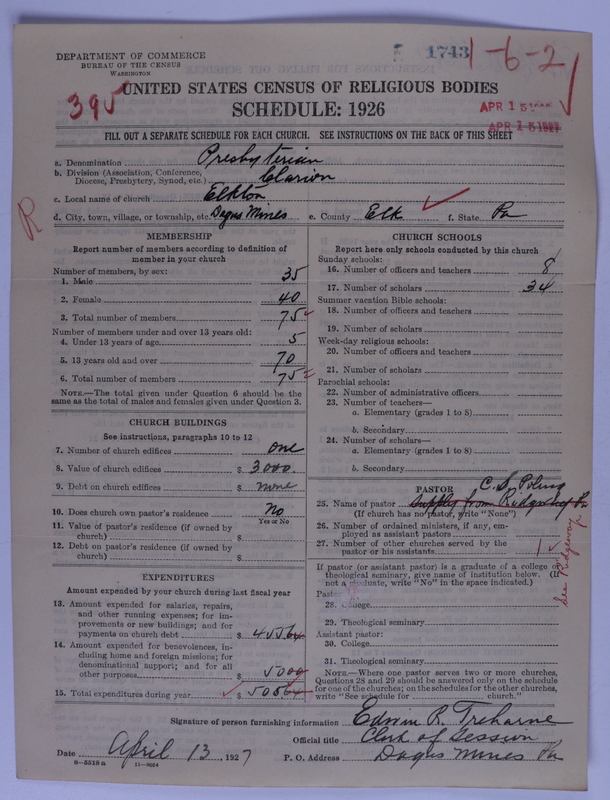 1743
1-6-2
DEPARTMENT OF COMMERCE
BUREAU OF THE CENSUS
WASHINGTON
395
UNITED STATES CENSUS OF RELIGIOUS BODIES
SCHEDULE: 1926
APR 15
APR 15 1927
FILL OUT A SEPARATE SCHEDULE FOR EACH CHURCH. SEE INSTRUCTIONS ON THE BACK OF THIS SHEET
a. Denomination Presbyterian
b. Division (Association, Conference,
Diocese, Presbytery, Synod, etc.) Clarion
c. Local name of church Elkton
d. City, town, village, or township, etc. Dagus Mines e. County Elk f. State Pa
R
MEMBERSHIP
Report number of members according to definition of
member in your church
Number of members, by sex:
1. Male 35
2. Female 40
3. Total number of members 75
Number of members under and over 13 years old:
4. Under 13 years of age 5
5. 13 years old and over 70
6. Total number of members 75
NOTE.—The total given under Question 6 should be the
same as the total of males and females given under Question 3.
CHURCH BUILDINGS
See instructions, paragraphs 10 to 12
7. Number of church edifices one
8. Value of church edifices $ 3000
9. Debt on church edifices $ none
10. Does church own pastor's residence? No
Yes or No
11. Value of pastor's residence (if owned by
church) $
12. Debt on pastor's residence (if owned by
church) $
EXPENDITURES
Amount expended by your church during last fiscal year
13. Amount expended for salaries, repairs,
and other running expenses; for im-
provements or new buildings; and for
payments on church debt $ 455
14. Amount expended for benevolences, in-
cluding home and foreign missions; for
denominational support; and for all
other purposes $ 50
15. Total expenditures during year $ 505
CHURCH SCHOOLS
Report here only schools conducted by this church
Sunday schools:
16. Number of officers and teachers 8
17. Number of scholars 34
Summer vacation Bible schools:
18. Number of officers and teachers
19. Number of scholars
Week-day religious schools:
20. Number of officers and teachers
21. Number of scholars
Parochial schools:
22. Number of administrative officers
23. Number of teachers—
a. Elementary (grades 1 to 8)
b. Secondary
24. Number of scholars—
a. Elementary (grades 1 to 8)
b. Secondary
PASTOR C. S. Poling
25. Name of pastor Supply from Ridgway Pa
(If church has no pastor, write "None")
26. Number of ordained ministers, if any, em-
ployed as assistant pastors
27. Number of other churches served by the
pastor or his assistants 1
If pastor (or assistant pastor) is a graduate of a college or
theological seminary, give name of institution below. (If
not a graduate, write "No" in the space indicated.)
See Ridgeway
Pastor:
28. College
29. Theological seminary
Assistant pastor:
30. College
31. Theological seminary
NOTE.—Where one pastor serves two or more churches,
Questions 28 and 29 should be answered only on the schedule
for one of the churches; on the schedules for the other churches,
write "See schedule for church."
Signature of person furnishing information Edwin R. Treharne
Official title Clerk of Session
Date April 13, 1927 P. O. Address Dagus Mines Pa
8-5518a 11-9054